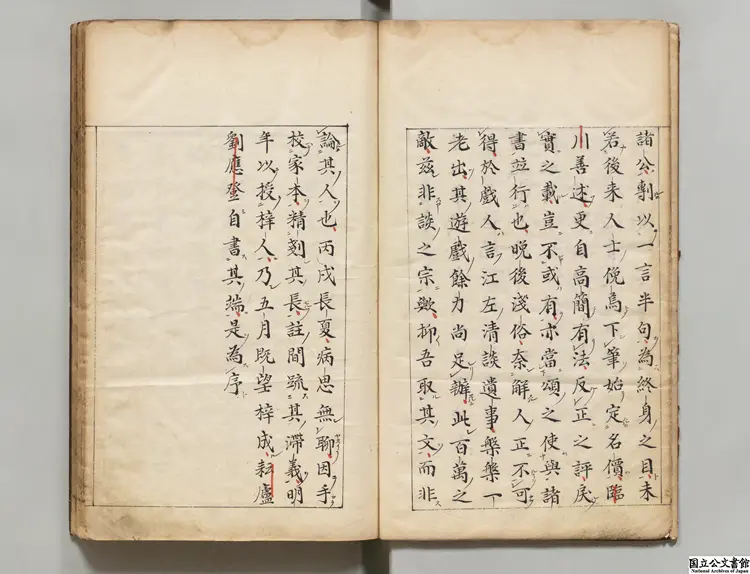 諸公剸以一言半句為終身之目未
若後来人士俛焉下筆始定名價臨
川善述更自高簡有法反正之評戾
實之載豈不或有亦當頌之使與諸
書並行也晚後淺俗奈解人正不可
得於戲人言江左清談遺事槃槃一
老出其遊戲餘力尚足辦此百萬之
敵兹非談之宗歟抑吾取其文而非
論其人也丙戌長夏病思無聊因手
校家本精刻其長註間疏其滯義明
年以授梓人乃五月既望梓成耘廬
劉應登自書其端是為序
国立公文書館
National Archives of Japan